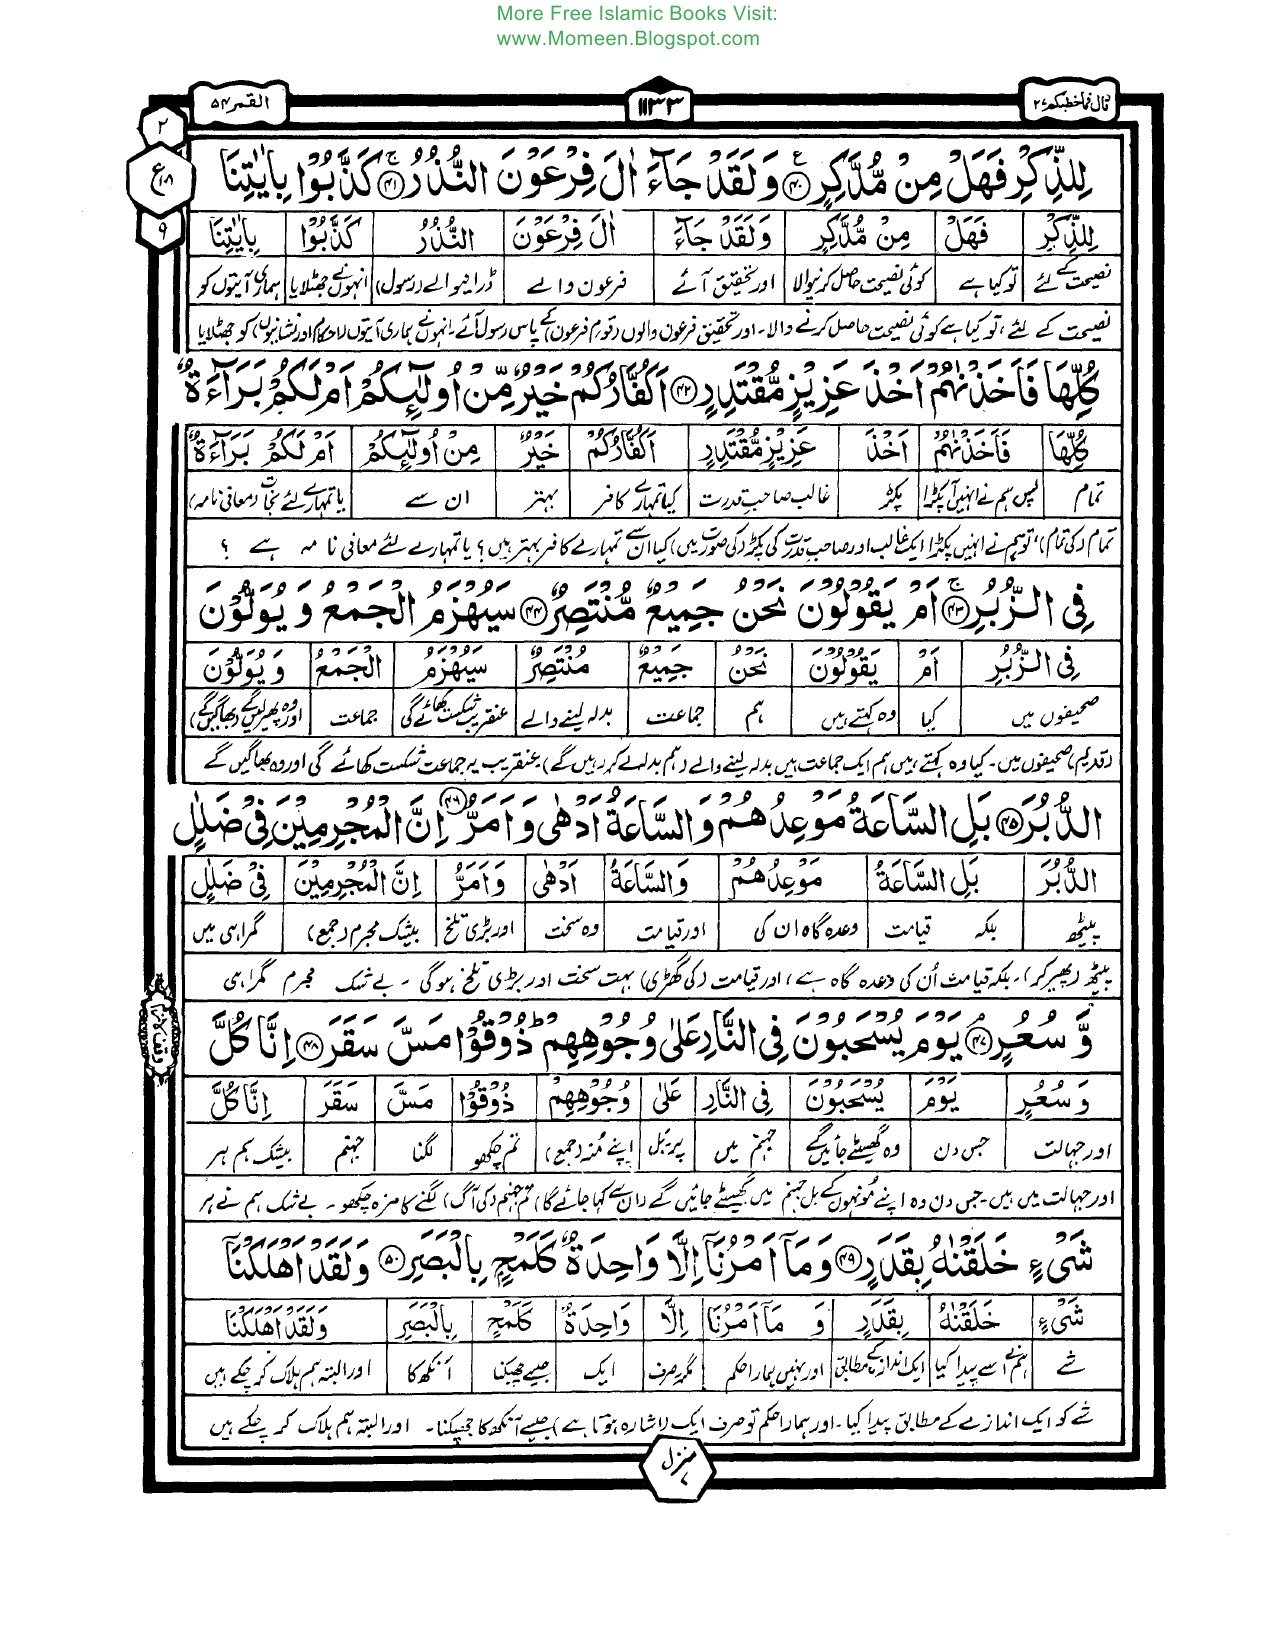 More Free Islamic Books Visit:
www.Momeen.Blogspot.com
القمر ۵۴
۱۱۳۳
قال فما خطبكم ۲۷
۲
ع ۱۸
۹
لِلذِّكْرِ فَهَلْ مِنْ مُّدَّكِرٍ ﴿۴۰﴾ وَلَقَدْ جَآءَ اٰلَ فِرْعَوْنَ النُّذُرُ ﴿۴۱﴾ كَذَّبُوْا بِاٰيٰتِنَا
لِلذِّكْرِ فَهَلْ مِنْ مُّدَّكِرٍ وَلَقَدْ جَآءَ اٰلَ فِرْعَوْنَ النُّذُرُ كَذَّبُوْا بِاٰيٰتِنَا
نصیحت کے لئے تو کیا ہے کوئی نصیحت حاصل کرنیوالا اور تحقیق آئے فرعون والے ڈرانیوالے (رسول) انہوں نے جھٹلایا ہماری آیتوں کو
نصیحت کے لئے، تو کیا ہے کوئی نصیحت حاصل کرنے والا۔ اور تحقیق فرعون والوں (قوم فرعون) کے پاس رسول آئے۔ انہوں نے ہماری آیتوں (احکام اور نشانیوں) کو جھٹلایا
كُلِّهَا فَاَخَذْنٰهُمْ اَخْذَ عَزِيْزٍ مُّقْتَدِرٍ ﴿۴۲﴾ اَكُفَّارُكُمْ خَيْرٌ مِّنْ اُولٰٓئِكُمْ اَمْ لَكُمْ بَرَآءَةٌ
كُلِّهَا فَاَخَذْنٰهُمْ اَخْذَ عَزِيْزٍ مُّقْتَدِرٍ اَكُفَّارُكُمْ خَيْرٌ مِنْ اُولٰٓئِكُمْ اَمْ لَكُمْ بَرَآءَةٌ
تمام پس ہم نے انہیں آ پکڑا پکڑ غالب صاحبِ قدرت کیا تمہارے کافر بہتر ان سے یا تمہارے لئے نجات (معافی نامہ)
تمام (کی تمام) تو ہم نے انہیں پکڑا ایک غالب اور صاحبِ قدرت کی پکڑ (کی صورت میں) کیا ان سے تمہارے کافر بہتر ہیں؟ یا تمہارے لئے معافی نامہ ہے ؟
فِى الزُّبُرِ ﴿۴۳﴾ اَمْ يَقُوْلُوْنَ نَحْنُ جَمِيْعٌ مُّنْتَصِرٌ ﴿۴۴﴾ سَيُهْزَمُ الْجَمْعُ وَيُوَلُّوْنَ
فِى الزُّبُرِ اَمْ يَقُوْلُوْنَ نَحْنُ جَمِيْعٌ مُنْتَصِرٌ سَيُهْزَمُ الْجَمْعُ وَيُوَلُّوْنَ
صحیفوں میں کیا وہ کہتے ہیں ہم جماعت بدلہ لینے والے عنقریب شکست کھائے گی جماعت اور وہ پھیر لیں گے (بھاگیں گے)
(قدیم) صحیفوں میں۔ کیا وہ کہتے ہیں ہم ایک جماعت ہیں بدلہ لینے والے (ہم بدلہ لے کر رہیں گے) عنقریب یہ جماعت شکست کھائے گی اور وہ بھاگیں گے
الدُّبُرَ ﴿۴۵﴾ بَلِ السَّاعَةُ مَوْعِدُهُمْ وَالسَّاعَةُ اَدْهٰى وَاَمَرُّ ﴿۴۶﴾ اِنَّ الْمُجْرِمِيْنَ فِىْ ضَلٰلٍ
الدُّبُرَ بَلِ السَّاعَةُ مَوْعِدُهُمْ وَالسَّاعَةُ اَدْهٰى وَاَمَرُّ اِنَّ الْمُجْرِمِيْنَ فِىْ ضَلٰلٍ
پیٹھ بلکہ قیامت وعدہ گاہ ان کی اور قیامت وہ سخت اور بڑی تلخ بیشک مجرم (جمع) گمراہی میں
پیٹھ (پھیر کر)۔ بلکہ قیامت اُن کی وعدہ گاہ ہے، اور قیامت (کی گھڑی) بہت سخت اور بڑی تلخ ہوگی ۔ بے شک مجرم گمراہی
وَّسُعُرٍ ﴿۴۷﴾ يَوْمَ يُسْحَبُوْنَ فِى النَّارِ عَلٰى وُجُوْهِهِمْ ذُوْقُوْا مَسَّ سَقَرَ ﴿۴۸﴾ اِنَّا كُلَّ
وَسُعُرٍ يَوْمَ يُسْحَبُوْنَ فِى النَّارِ عَلٰى وُجُوْهِهِمْ ذُوْقُوْا مَسَّ سَقَرَ اِنَّا كُلَّ
اور جہالت جس دن وہ گھسیٹے جائیں گے جہنم میں پر۔ بَل اپنے منہ (جمع) تم چکھو لگنا جہنم بیشک ہم ہر
اور جہالت میں ہیں۔ جس دن وہ اپنے مُونہوں کے بل جہنم میں گھسیٹے جائیں گے (ان سے کہا جائے گا) تم جہنم (کی آگ) لگنے کا مزہ چکھو ۔ بے شک ہم نے ہر
شَىْءٍ خَلَقْنٰهُ بِقَدَرٍ ﴿۴۹﴾ وَمَآ اَمْرُنَآ اِلَّا وَاحِدَةٌ كَلَمْحٍۭ بِالْبَصَرِ ﴿۵۰﴾ وَلَقَدْ اَهْلَكْنَآ
شَىْءٍ خَلَقْنٰهُ بِقَدَرٍ وَ مَآ اَمْرُنَا اِلَّا وَاحِدَةٌ كَلَمْحٍ بِالْبَصَرِ وَلَقَدْ اَهْلَكْنَا
شے ہم نے اسے پیدا کیا ایک اندازے کے مطابق اور نہیں ہمارا حکم مگر۔ صرف ایک جیسے جھپکنا آنکھ کا اور البتہ ہم ہلاک کر چکے ہیں
شے کو ایک اندازے کے مطابق پیدا کیا۔ اور ہمارا حکم تو صرف ایک (اشارہ ہوتا ہے) جیسے آنکھ کا جھپکنا۔ اور البتہ ہم ہلاک کر چکے ہیں
منزل ۷